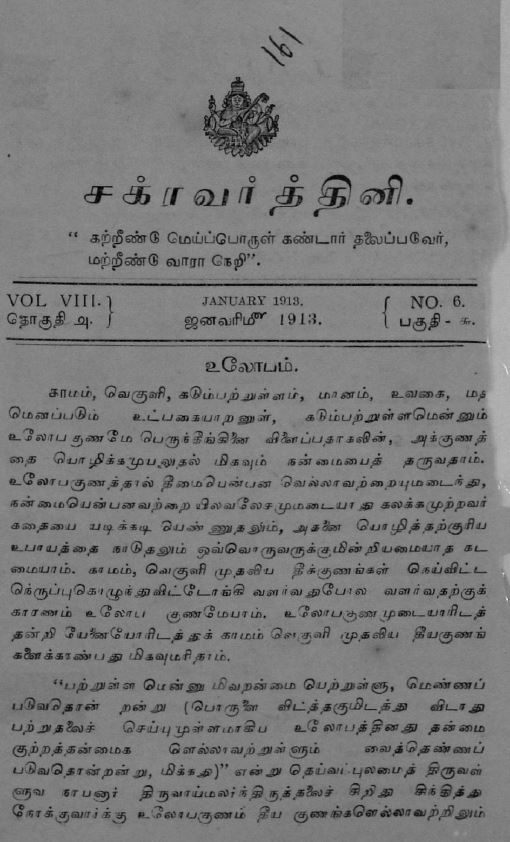 161
சக்ரவர்த்தினி.
“ கற்றீண்டு மெய்ப்பொருள் கண்டார் தலைப்படுவேர்,
மற்றீண்டு வாரா நெறி”.
VOL VIII.
தொகுதி அ.
JANUARY 1913.
ஜனவரிமீ 1913.
NO. 6.
பகுதி - சு.
உலோபம்.
காமம், வெகுளி, கடும்பற்றுள்ளம், மானம், உவகை, மத
மெனப்படும் உட்பகையாறனுள், கடும்பற்றுள்ளமென்னும்
உலோப குணமே பெருந்தீங்கினை விளைப்பதாகலின், அக்குணத்
தை யொழிக்கமுயலுதல் மிகவும் நன்மையைத் தருவதாம்.
உலோபகுணத்தால் தீமையென்பன வெல்லாவற்றையுமடைந்து,
நன்மையென்பனவற்றை யிலவலேசமுமடையாது கலக்கமுற்றவர்
கதையை யடிக்கடி யெண்ணுதலும், அதனை யொழித்தற்குரிய
உபாயத்தை நாடுதலும் ஒவ்வொருவருக்குமின்றியமையாத கட
மையாம். காமம், வெகுளி முதலிய தீக்குணங்கள் நெய்விட்ட
நெருப்புகொழுந்துவிட்டோங்கி வளர்வதுபோல வளர்வதற்குக்
காரணம் உலோப குணமேயாம். உலோபகுணமுடையாரிடத்
தன்றி யேனையோரிடத்துக் காமம் வெகுளி முதலிய தீயகுணங்
களைக்காண்பது மிகவுமரிதாம்.
“பற்றுள்ள மென்னு மிவறன்மை யெற்றுள்ளு, மெண்ணப்
படுவதொன் றன்று (பொருளை விட்த்தகுமிடத்து விடாது
பற்றுதலைச் செய்யுமுள்ளமாகிய உலோபத்தினது தன்மை
குற்றத்தன்மைக ளெல்லாவற்றுள்ளும் வைத்தெண்ணப்
படுவதொன்றன்று, மிக்கது)” என்று தெய்வப்புலமைத் திருவள்
ளுவ நாயனார் திருவாய்மலர்ந்திருத்தலைச் சிறிது சிந்தித்து
நோக்குவார்க்கு உலோபகுணம் தீய குணங்களெல்லாவற்றினும்